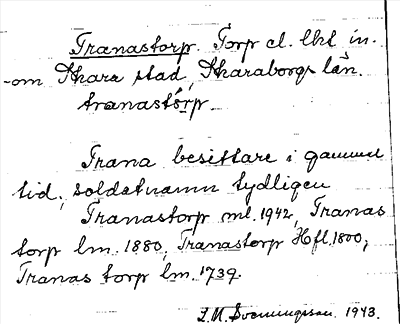 Tranastorp. Torp el. lht in-
om Skara stad, Skaraborgs län.
tranastórp.
Trana besittare i gammal
tid, soldatnamn tydligen
Tranastorp ml. 1942, Tranas
torp lm. 1880, Tranastorp Hfl. 1800,
Tranas torp lm. 1739.
1943.